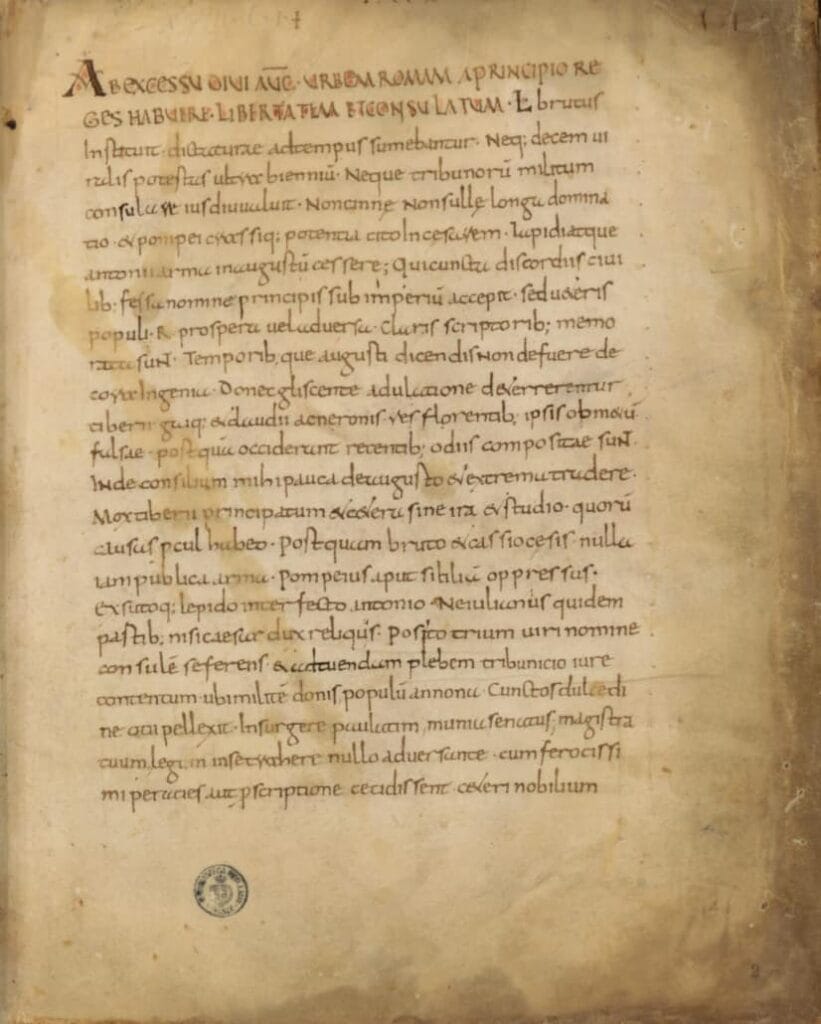 AB EXCESSU DIVI AUG· URBEM ROMAM A PRINCIPIO RE
GES HABUERE· LIBERTATEM ET CONSULATUM· L brutus
Instituit· dictaturae adtempus sumebantur· Neq; decem ui
ralis potestas ultra bienniū· Neque tribunorū militum
consulare ius diu ualuit· Non cinne Non sulle longa domina
tio· & pompei crassiq; potentia cito In cesarem· Lepidi atque
antonii arma in augustū cessere; Qui cuncta discordiis ciui
lib· fessa nomine principis sub imperiū accepit· sed ueteris
populi· R· prospera uel aduersa· Claris scriptorib; memo
rata suNt· Temporib, que augusti dicendis Non defuere de
cora Ingenia· Donec gliscente adulatione deterrerentur
tiberii gaiq; & claudii ac neronis res florentib; ipsis ob metū
falsae· postquā occiderant recentib; odiis compositae suNt·
INde consilium mihi pauca de augusto & extrema tradere·
Mox tiberii principatum & cetera sine ira & studio· quorū
causas pcul habeo· Postquam bruto & cassio cesis nulla
iam publica arma· Pompeius aput siciliā oppressus·
exsutoq; lepido interfecto antonio Ne iulianis quidem
partib; nisi caesar dux reliqus· Posito trium uiri nomine
consulē se ferens· & ad tuendam plebem tribunicio iure
contentum· ubi militē donis populū annona· Cunctos dulcedi
ne otii pellexit· Insurgere paulatim, munia senatus, magistra
tuum, legū, in se trahere nullo aduersante· cum ferocissi
mi per acies aut pscriptione cecidissent· ceteri nobilium
2